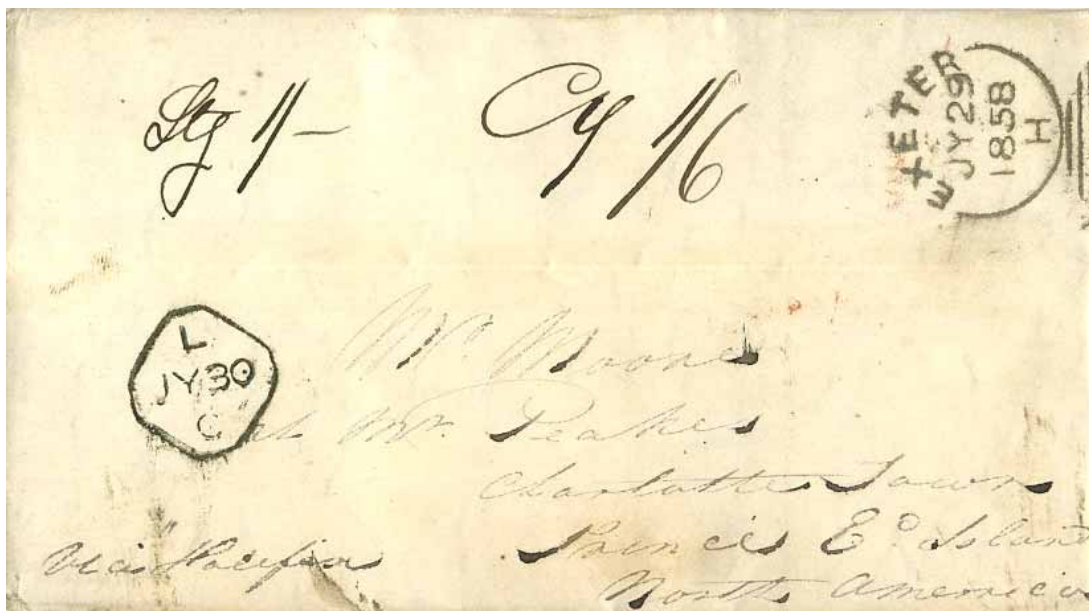 Stg 1/- Cy 1/6
EXETER
JY 29
1858
H
L
JY 30
C
Mr. Moore
at Mr. Peakes
Charlotte Town
Prince Ed. Island
Via Halifax
North America